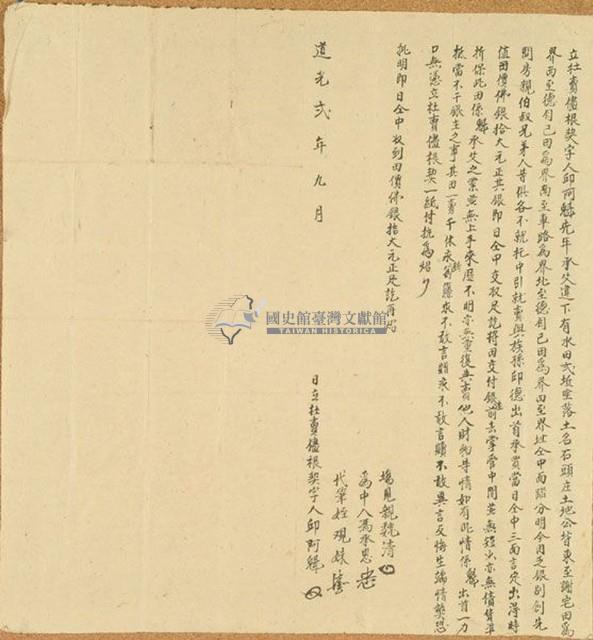 立杜賣儘根契字人邱阿驎先年承父遺下有水田弍坵坐落土名石頭庄土地公背東至謝宅田為
界西至德創己田為界南至車路為界北至德創己田為界四至界址仝中面踏分明今因乏銀別創先
問房親伯叔兄弟人等俱各不就托中引就賣與族孫邱德出首承買當日仝中三面言定出得時
值田價佛銀拾大元正其銀即日仝中交收足訖將田交付銀主前去掌管中間並無短少亦無債貨準
折保此田係驎承父之業並無上手來歷不明亦無重復典賣他人財物等情如有此情係驎出首一力
抵當不干銀主之事其田一賣千休永斷葛藤永不敢言贖永不敢異言反悔生端情弊恐
口無憑立杜賣儘根契一紙付執為炤
批明即日仝中收到田價佛銀拾大元正足訖再炤
國史館臺灣文獻館
TAIWAN HISTORICA
場見親 清
為中人馮承思
代筆姪觀妹
道光弍年九月 日立杜賣儘根契字人邱阿驎